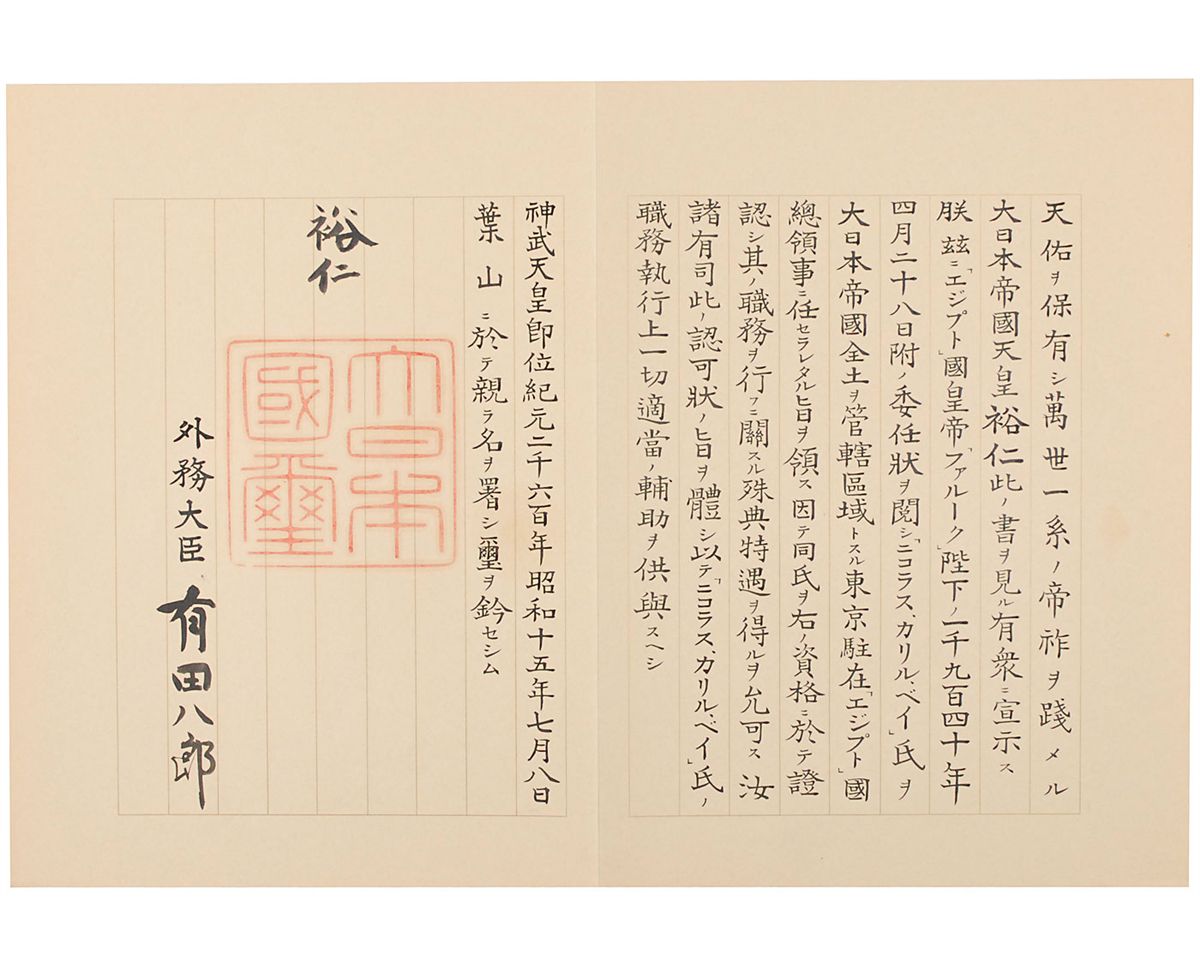 天佑ヲ保有シ萬世一系ノ帝祚ヲ踐メル
大日本帝國天皇裕仁此ノ書ヲ見ル有衆ニ宣示ス
朕玆ニ「エジプト」國皇帝「ファルーク」陛下ノ一千九百四十年
四月二十八日附ノ委任狀ヲ閱シ「ニコラス、カリル、ベイ」氏ヲ
大日本帝國全土ヲ管轄區域トスル東京駐在「エジプト」國
總領事ニ任セラレタル旨ヲ領ス因テ同氏ヲ右ノ資格ニ於テ證
認シ其ノ職務ヲ行フニ關スル殊典特遇ヲ得ルヲ允可ス汝
諸有司此ノ認可狀ノ旨ヲ體シ以テ「ニコラス、カリル、ベイ」氏ノ
職務執行上一切適當ノ輔助ヲ供與スヘシ
神武天皇卽位紀元二千六百年昭和十五年七月八日
葉山ニ於テ親ラ名ヲ署シ璽ヲ鈐セシム
裕仁
大日本
國璽
外務大臣 有田八郎